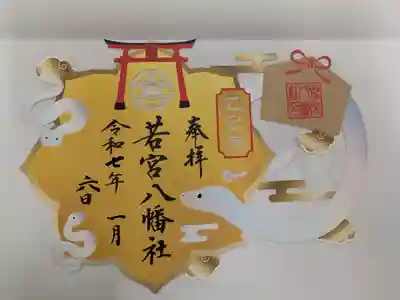 奉拝
若宮八幡社
令和七年 一月
六日